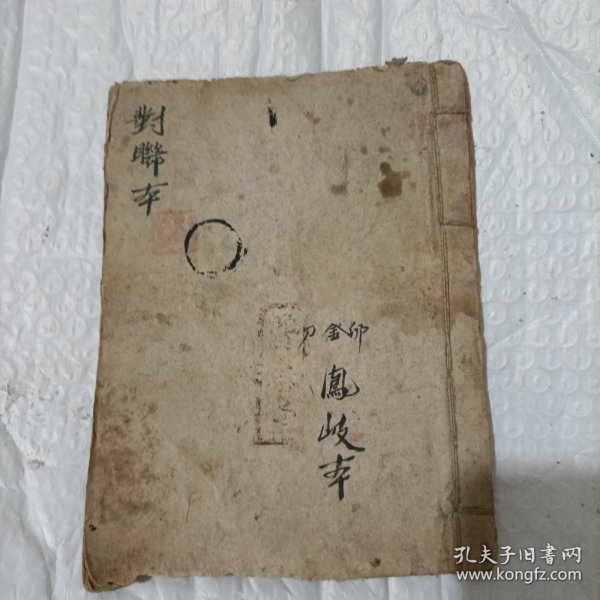 對聯本
卯金刀
鳳岐本
孔夫子旧書网
www.kongfz.com